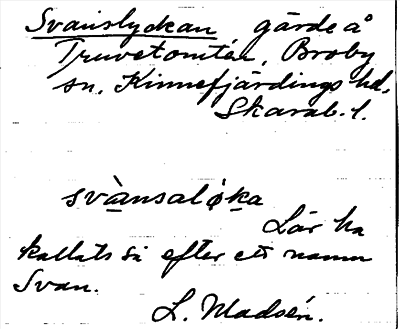 Svanslyckan gärde å
Truvetomtén, Broby
sn. Kinnefjärdings hd.
Skarab. l.
svànsalø̀ka
Lär ha
kallats så efter ett namn
Svan.
L. Madsén.